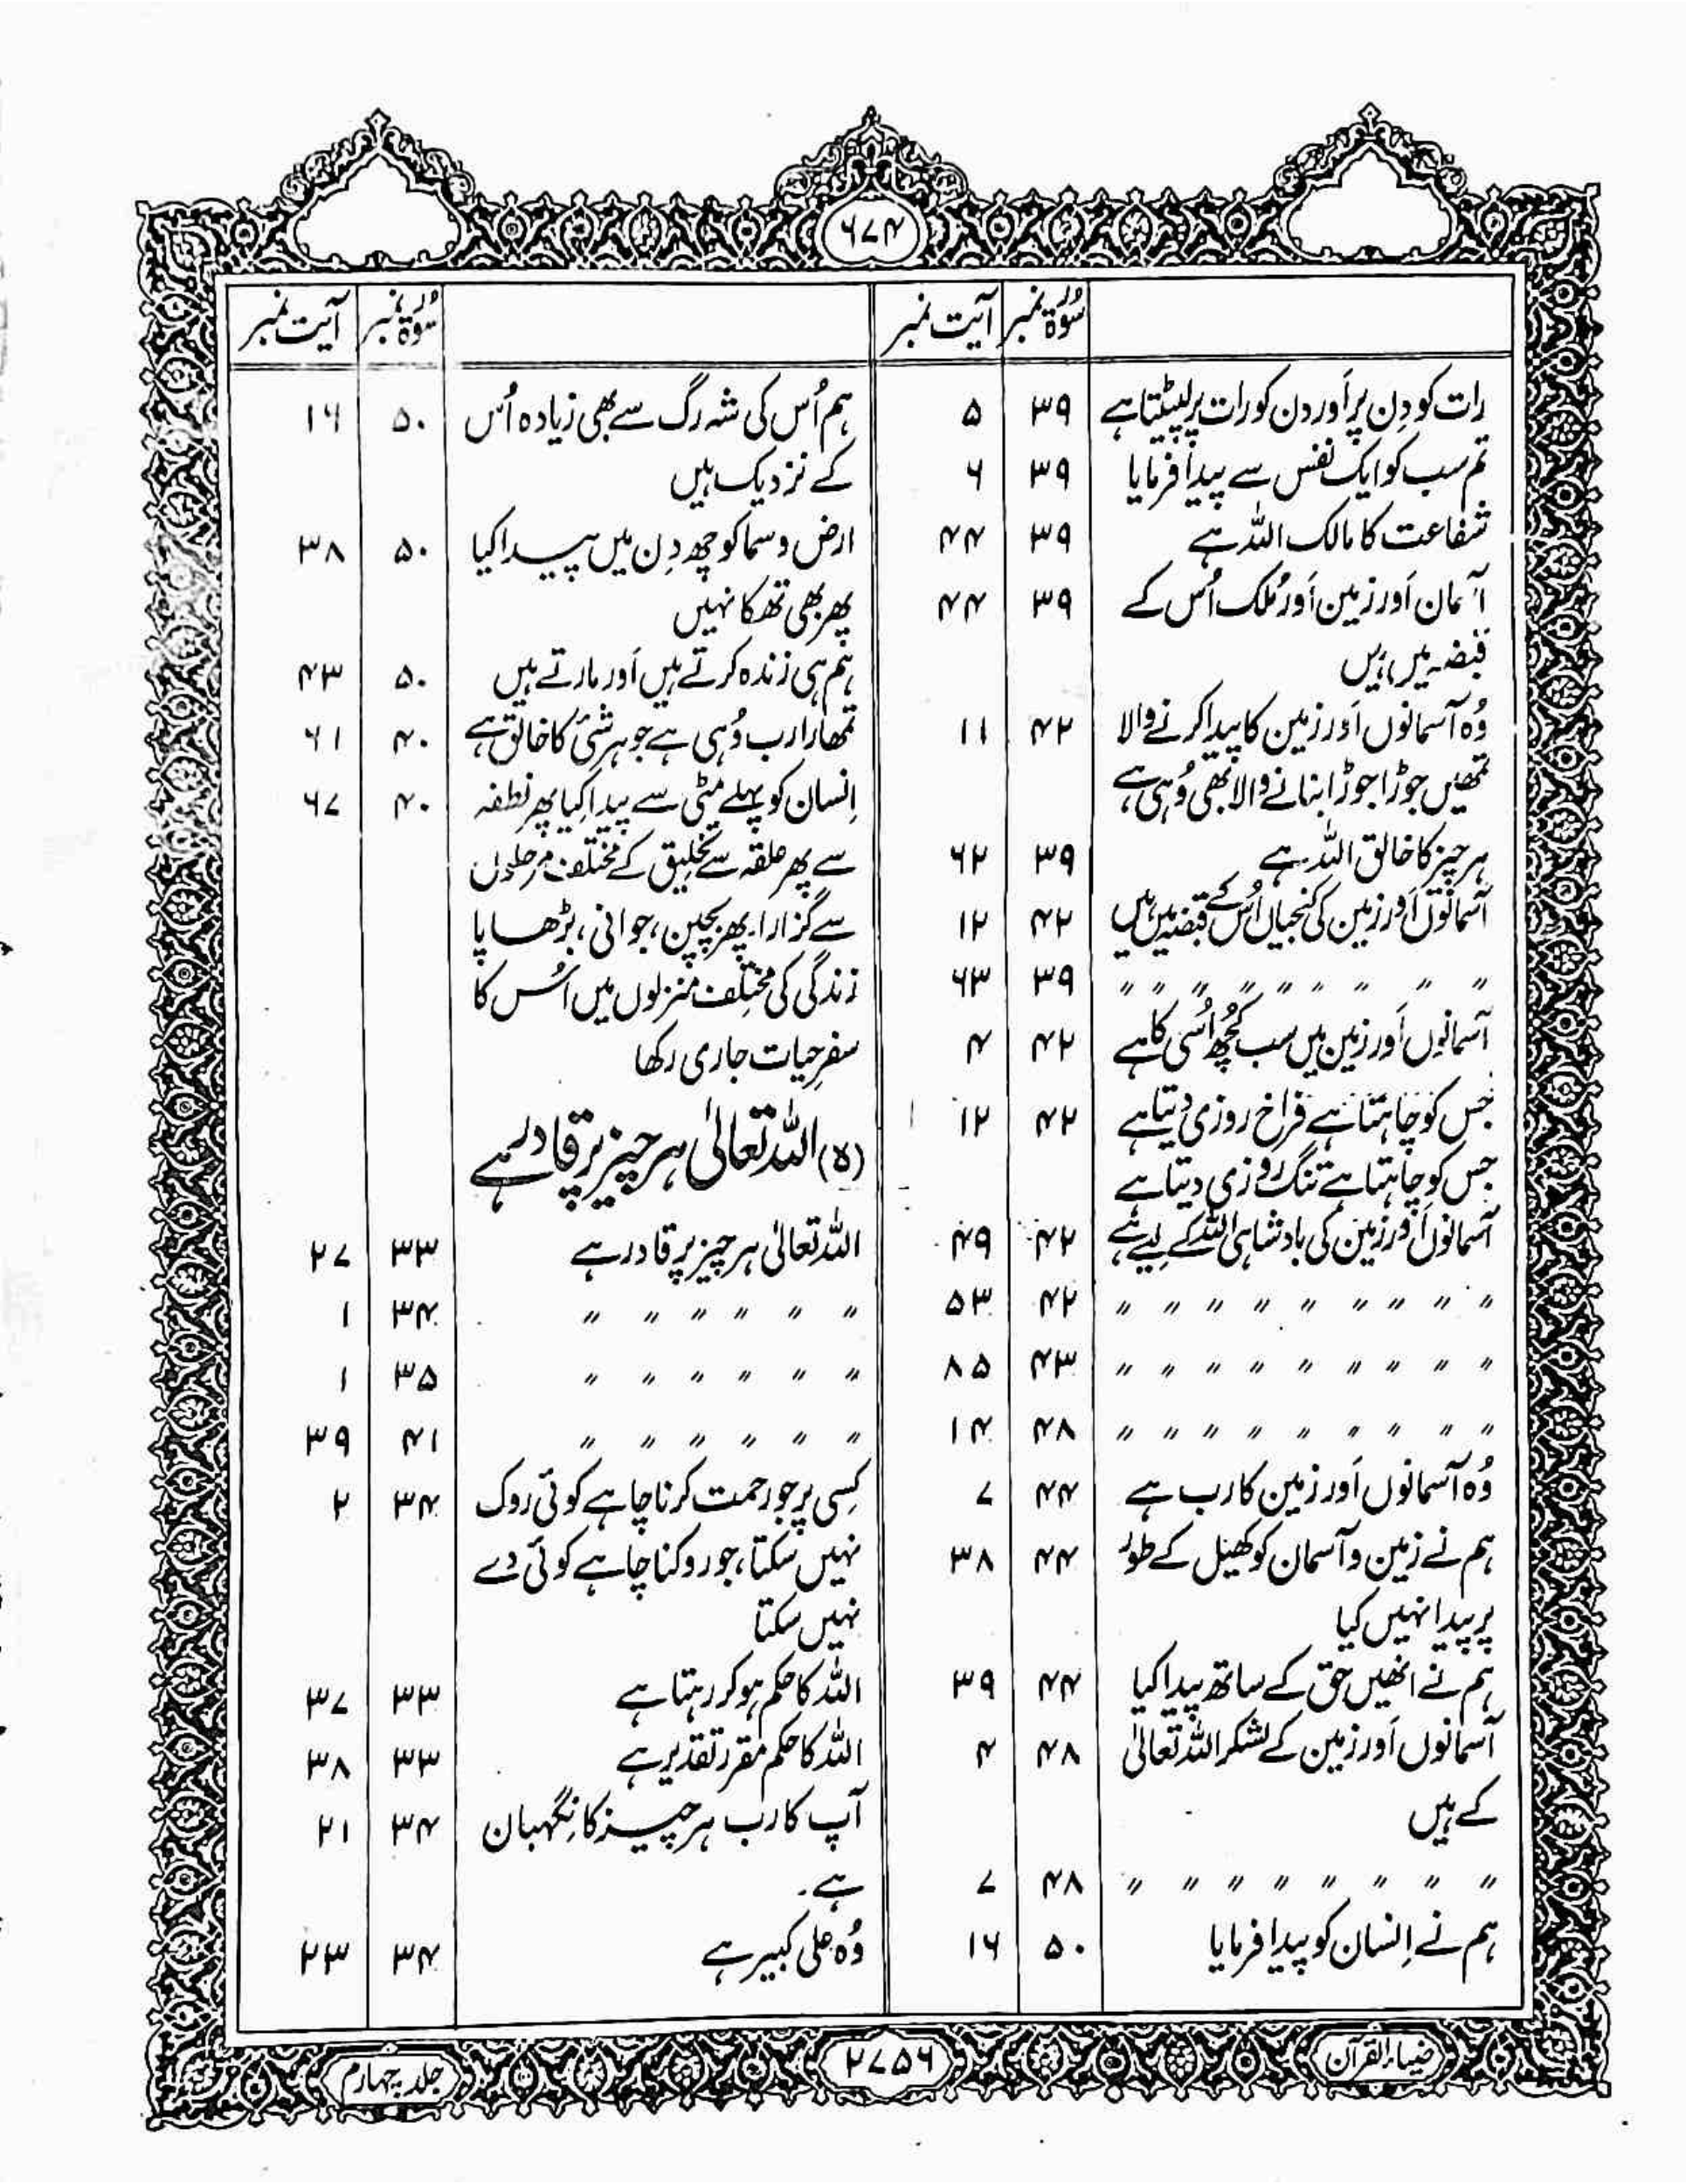 ۶۷۴
سورۃ نمبر آیت نمبر
رات کو دِن پر اَور دن کو رات پر لپیٹتا ہے ۳۹ ۵
تم سب کو ایک نفس سے پیدا فرمایا ۳۹ ۶
شفاعت کا مالک اللہ ہے ۳۹ ۴۴
آسمان اَور زمین اَور مُلک اُس کے ۳۹ ۴۴
قبضہ میں ہیں
وُہ آسمانوں اَور زمین کا پیدا کرنے والا ۴۲ ۱۱
تمھیں جوڑا جوڑا بنانے والا بھی وُہی ہے
ہر چیز کا خالق اللہ ہے ۳۹ ۶۲
آسمانوں اَور زمین کی کنجیاں اُس کے قبضہ میں ہیں ۴۲ ۱۲
〃 〃 〃 〃 〃 〃 〃 〃 〃 ۳۹ ۶۳
آسمانوں اَور زمین میں سب کُچھ اُسی کا ہے ۴۲ ۴
جس کو چاہتا ہے فراخ روزی دیتا ہے ۴۲ ۱۲
جس کو چاہتا ہے تنگ روزی دیتا ہے
آسمانوں اَور زمین کی بادشاہی اللہ کے لیے ہے ۴۲ ۴۹
〃 〃 〃 〃 〃 〃 〃 〃 〃 ۴۲ ۵۳
〃 〃 〃 〃 〃 〃 〃 〃 〃 ۴۳ ۸۵
〃 〃 〃 〃 〃 〃 〃 〃 〃 ۴۸ ۱۴
وُہ آسمانوں اَور زمین کا رب ہے ۴۴ ۷
ہم نے زمین و آسمان کو کھیل کے طور ۴۴ ۳۸
پر پیدا نہیں کیا
ہم نے انھیں حق کے ساتھ پیدا کیا ۴۴ ۳۹
آسمانوں اَور زمین کے لشکر اللہ تعالیٰ ۴۸ ۴
کے ہیں
〃 〃 〃 〃 〃 〃 〃 〃 ۴۸ ۷
ہم نے اِنسان کو پیدا فرمایا ۵۰ ۱۶
سورۃ نمبر آیت نمبر
ہم اُس کی شہ رگ سے بھی زیادہ اُس ۵۰ ۱۶
کے نزدیک ہیں
ارض و سما کو چھ دِن میں پیدا کیا ۵۰ ۳۸
پھر بھی تھکا نہیں
ہم ہی زندہ کرتے ہیں اَور مارتے ہیں ۵۰ ۴۳
تمھارا رب وُہی ہے جو ہر شئ کا خالق ہے ۴۰ ۶۱
اِنسان کو پہلے مٹی سے پیدا کیا پھر نطفہ ۴۰ ۶۷
سے پھر علقہ سے تخلیق کے مختلف مرحلوں
سے گزارا۔ پھر بچپن، جوانی، بڑھاپا
زندگی کی مختلف منزلوں میں اُس کا
سفرِ حیات جاری رکھا
(ہ) اللہ تعالیٰ ہر چیز پر قادر ہے
اللہ تعالیٰ ہر چیز پر قادر ہے ۳۳ ۲۷
〃 〃 〃 〃 〃 〃 ۳۴ ۱
〃 〃 〃 〃 〃 〃 ۳۵ ۱
〃 〃 〃 〃 〃 〃 ۴۱ ۳۹
کِسی پر جو رحمت کرنا چاہے کوئی روک ۳۴ ۲
نہیں سکتا، جو روکنا چاہے کوئی دے
نہیں سکتا
اللہ کا حکم ہو کر رہتا ہے ۳۳ ۳۷
اللہ کا حکم مقرر تقدیر ہے ۳۳ ۳۸
آپ کا رب ہر چیز کا نِگہبان ۳۴ ۲۱
ہے۔
وُہ علی کبیر ہے ۳۴ ۲۳
ضیاء القرآن
۲۷۵۶
جلد چہارم